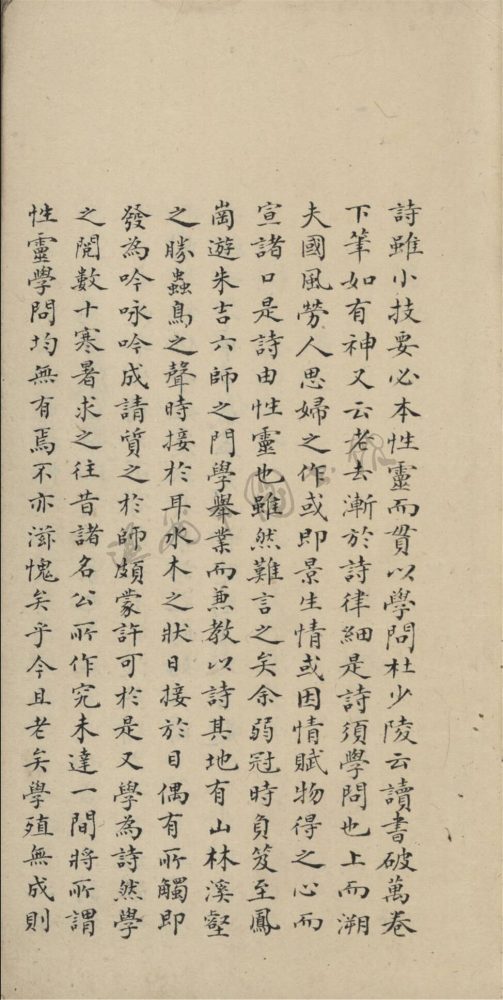 詩雖小技要必本性靈而貫以學問杜少陵云讀書破萬卷
下筆如有神又云老去漸於詩律細是詩須學問也上而溯
夫國風勞人思婦之作或即景生情或因情賦物得之心而
宣諸口是詩由性靈也雖然難言之矣余弱冠時負笈至鳳
崗遊朱吉六師之門學舉業而兼教以詩其地有山林溪壑
之勝蟲鳥之聲時接於耳水木之狀日接於目偶有所觸即
發為吟咏吟成請質之於師頗蒙許可於是又學為詩然學
之閱數十寒暑求之往昔諸名公所作究未達一間將所謂
性靈學問均無有焉不亦滋愧矣乎今且老矣學殖無成則